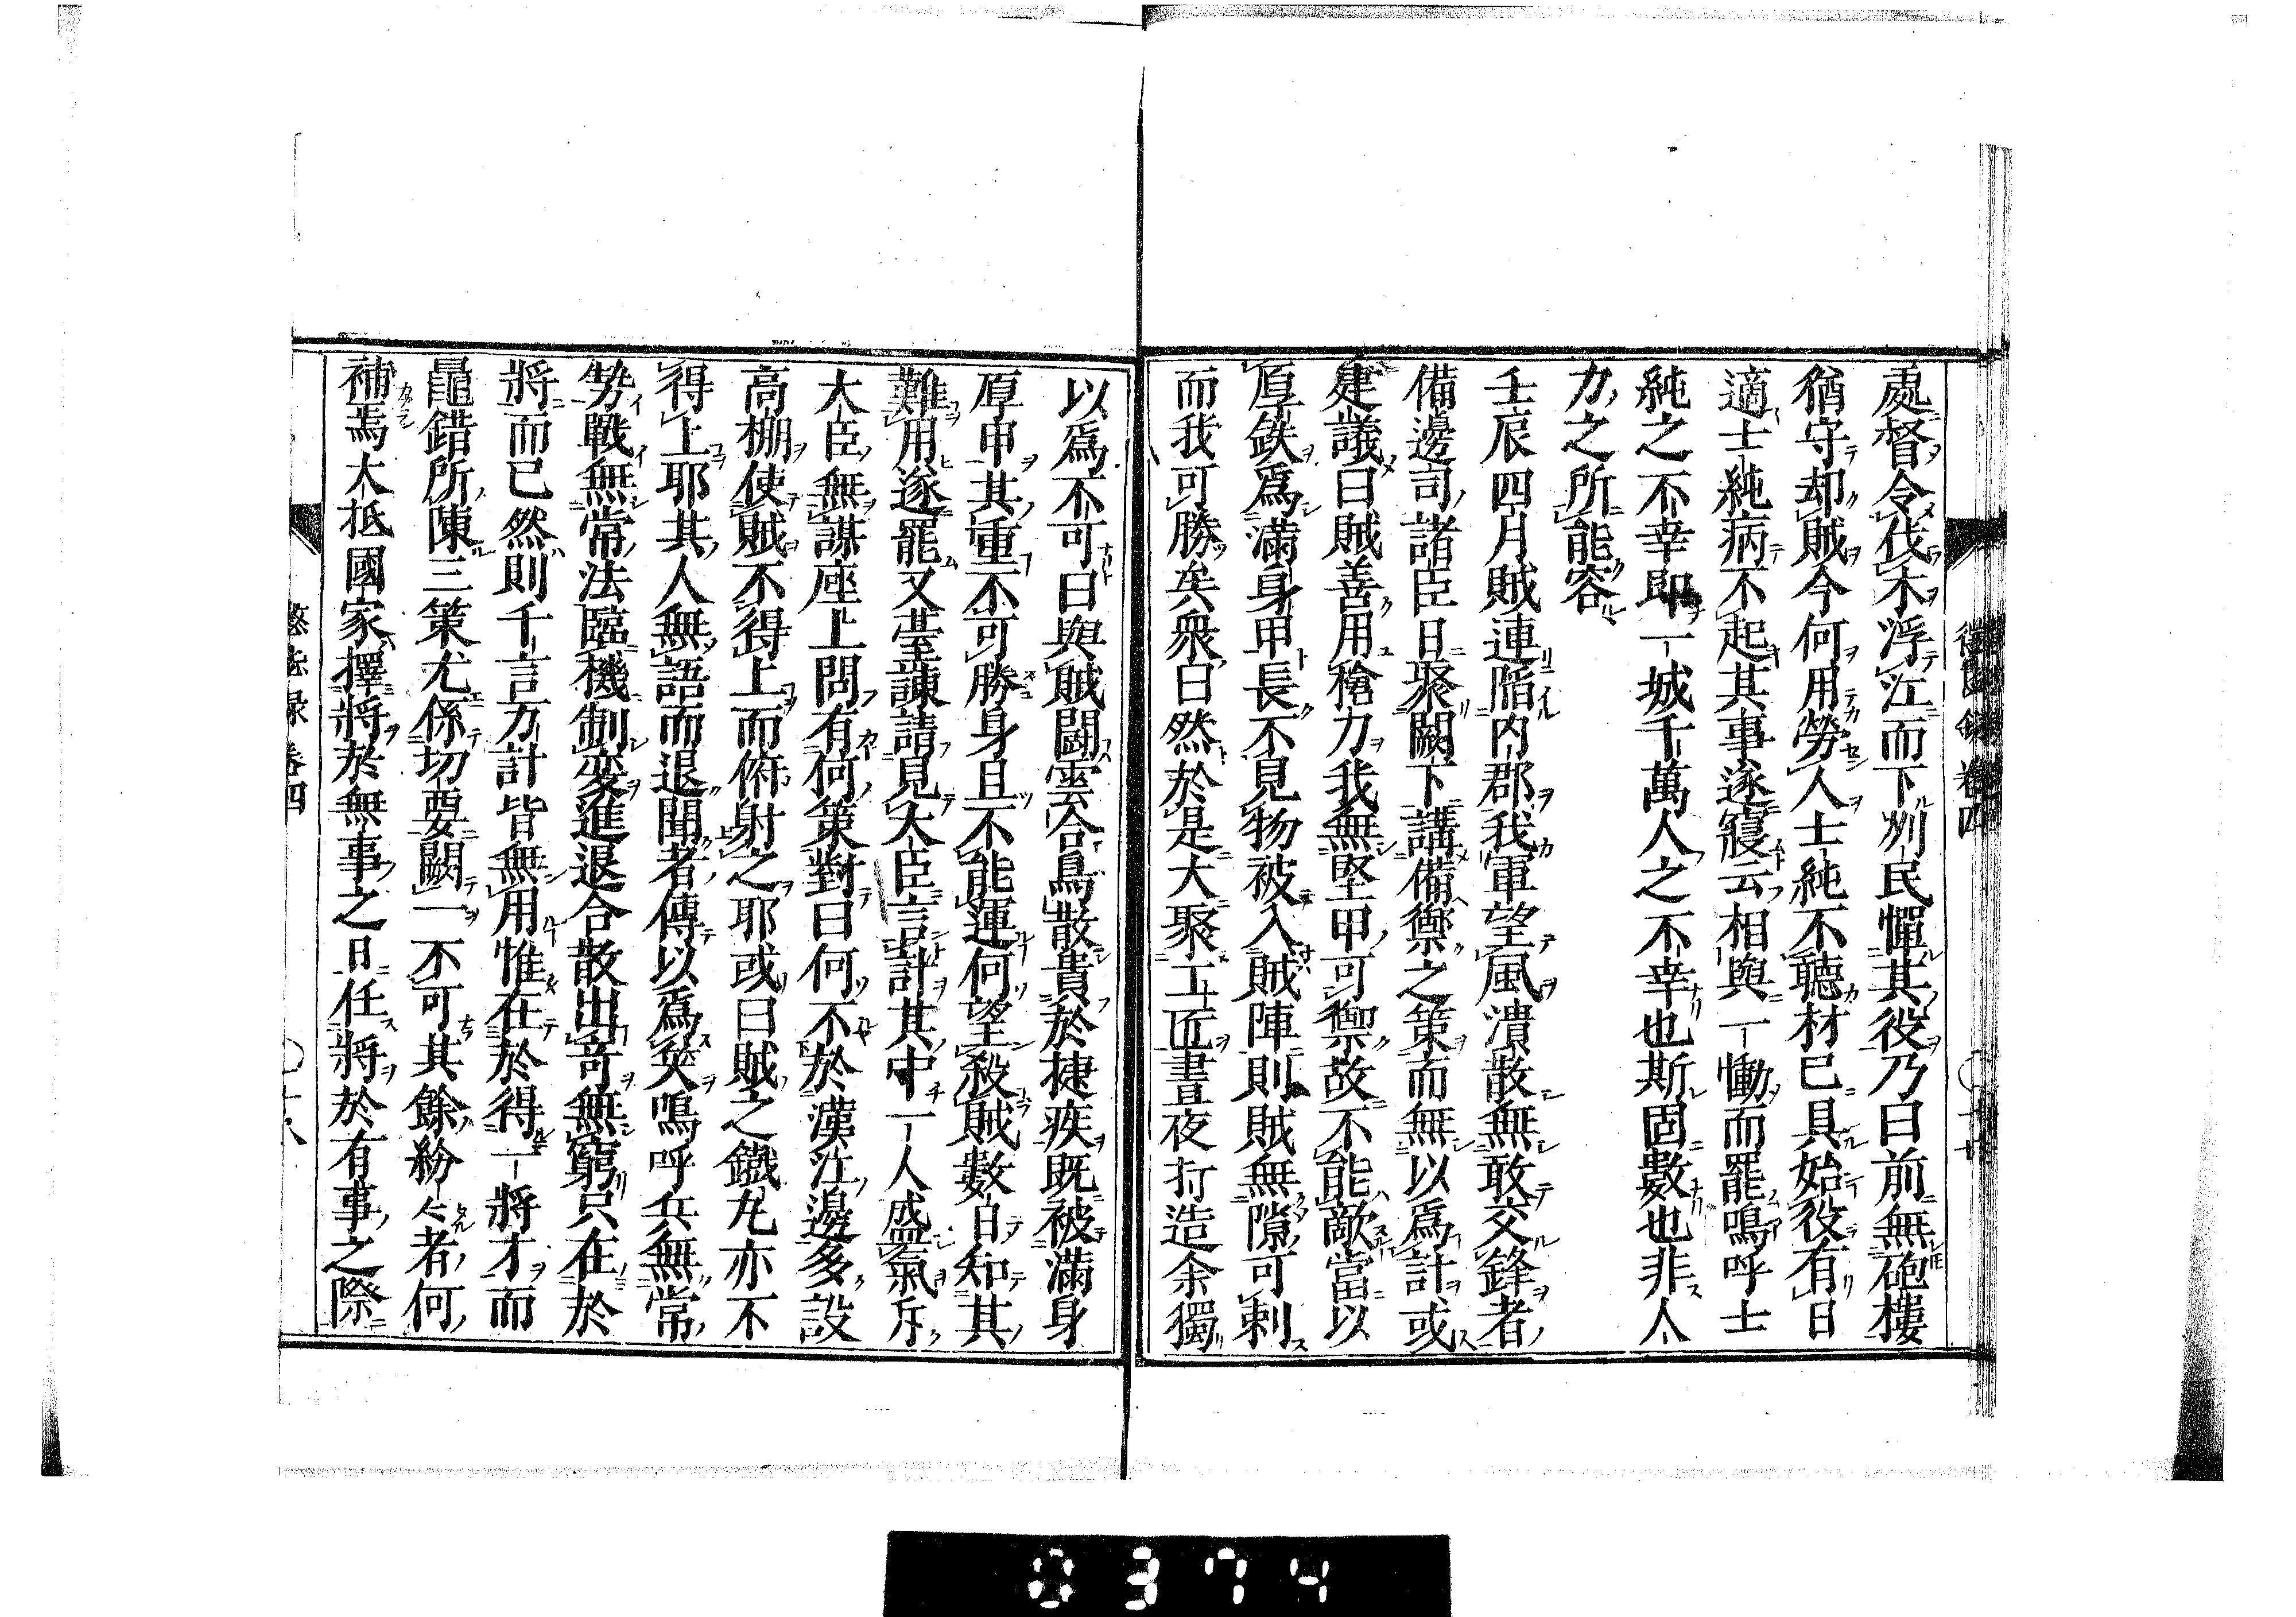 處督令伐木浮江而下州民憚其役乃曰前無砲樓
猶守却賊今何用勞人士純不聽材已具始役有日
適士純病不起其事遂寢云相與一慟而罷嗚呼士
純之不幸即一城千萬人之不幸也斯固數也非人
力之所能容
壬辰四月賊連陷內郡我軍望風潰散無敢交鋒者
備邊司諸臣日聚闕下講備禦之策而無以爲計或
建議曰賊善用槍力我無堅甲可禦故不能敵當以
厚鉄爲滿身甲長不見物被入賊陣則賊無隙可刺
而我可勝矣衆曰然於是大聚工匠晝夜打造余獨
以爲不可曰與賊鬪雲合鳥散貴於捷疾既被滿身
厚甲其重不可勝身且不能運何望殺賊數日知其
難用遂罷又臺諫請見大臣言計其中一人盛氣斥
大臣無謀座上問有何策對曰何不於漢江邊多設
高棚使賊不得上而俯射之耶或曰賊之鐵丸亦不
得上耶其人無語而退聞者傳以爲笑嗚呼兵無常
勢戰無常法臨機制變進退合散出奇無窮只在於
將而已然則千言力計皆無用惟在於得一將才而
鼂錯所陳三策尤係切要闕一不可其餘紛〻者何
補焉大抵國家擇將於無事之日任將於有事之際
懲毖録 卷四